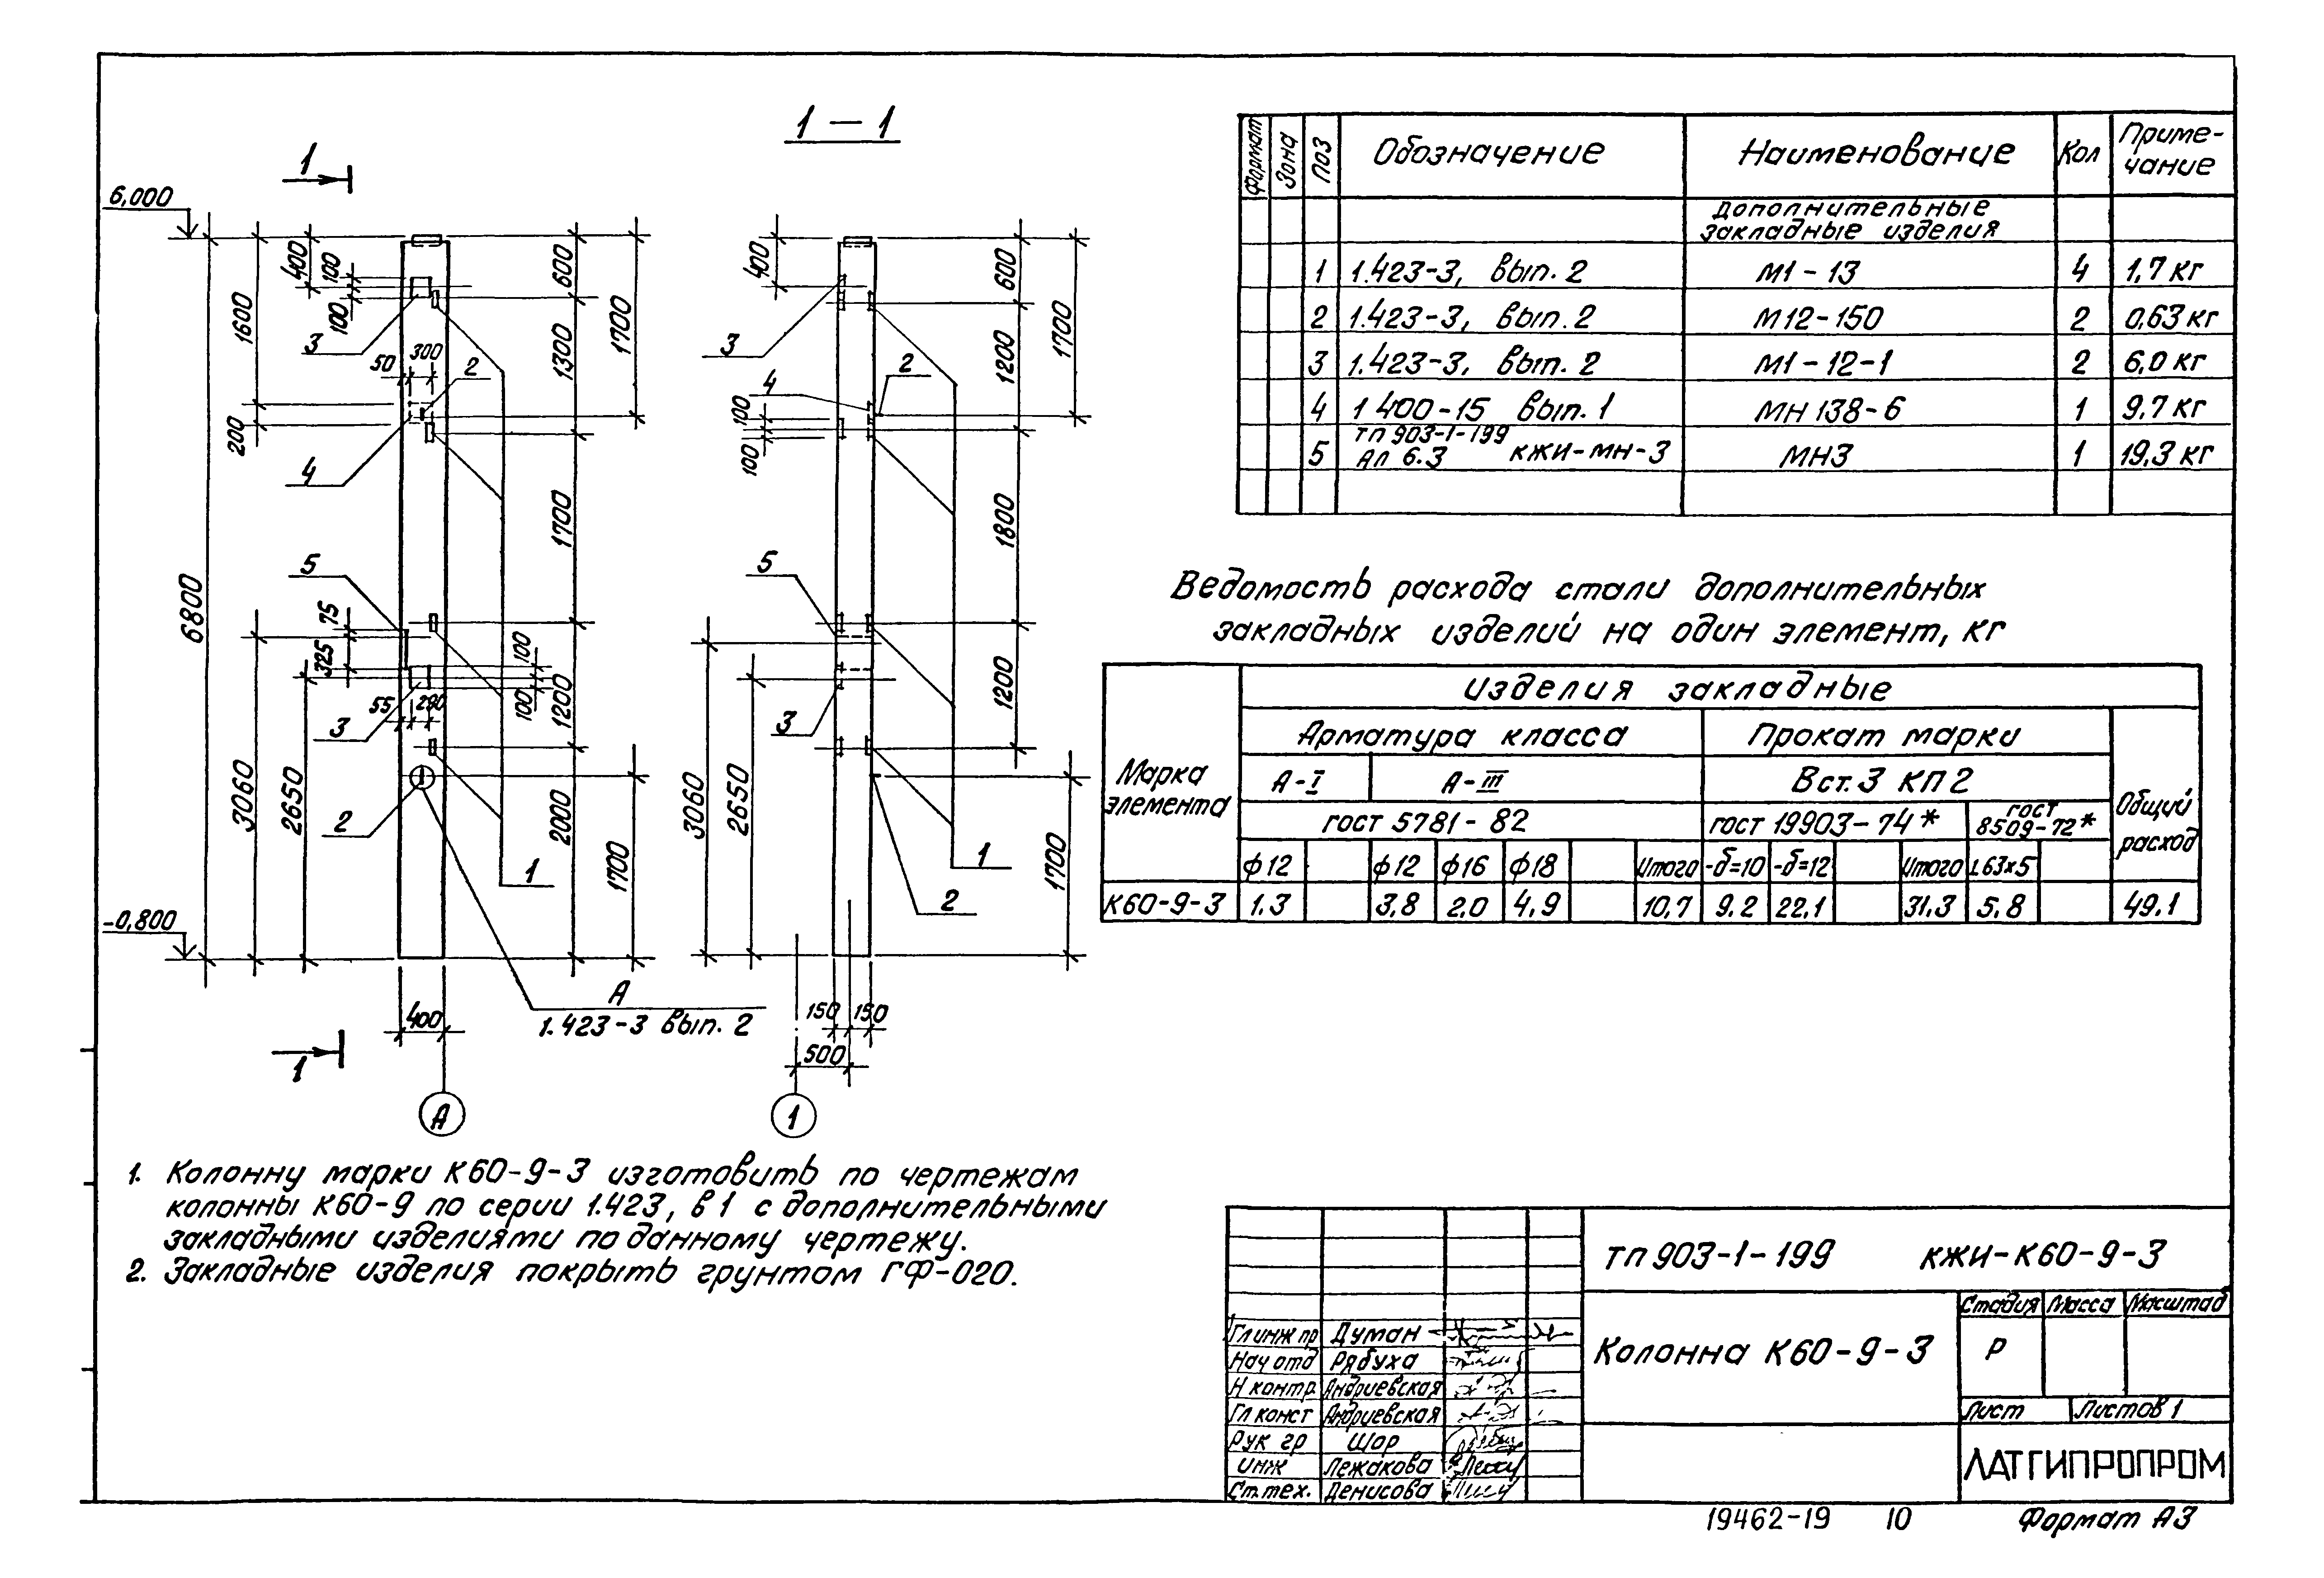 1 — 1
1
6,000
400
100
100
1600
3
50
300
2
200
4
600
1300
1700
1700
5
6800
75
325
100
100
1200
55
290
3
3060
2650
2
2000
1700
1
-0,800
А
1.423-3 вып. 2
400
1
А
400
600
3
1200
1700
4
2
100
100
1800
5
1200
3
3060
2650
1
2
1700
150
150
500
1
Формат
Зона
Поз
Обозначение
Наименование
Кол
Приме-
чание
Дополнительные
закладные изделия
1 1.423-3, вып. 2 М1-13 4 1,7 кг
2 1.423-3, вып. 2 М12-150 2 0,63 кг
3 1.423-3, вып. 2 М1-12-1 2 6,0 кг
4 1 400-15 вып. 1 МН 138-6 1 9,7 кг
тп 903-1-199
5 Ал 6.3 кжи-мн-3 МН3 1 19,3 кг
Ведомость расхода стали дополнительных
закладных изделий на один элемент, кг
Марка
элемента
Изделия закладные
Арматура класса
Прокат марки
Общий
расход
А-I
А-III
Вст.3 КП 2
гост 5781-82
гост 19903-74*
гост
8509-72*
ф12 ф12 ф16 ф18 Итого -δ=10 -δ=12 Итого L63x5
К60-9-3 1.3 3,8 2,0 4,9 10,7 9.2 22,1 31,3 5,8 49,1
1. Колонну марки К60-9-3 изготовить по чертежам
колонны К60-9 по серии 1.423, в 1 с дополнительными
закладными изделиями по данному чертежу.
2. Закладные изделия покрыть грунтом ГФ-020.
тп 903-1-199 кжи-К60-9-3
Колонна К60-9-3
Стадия Масса Масштаб
Р
Лист Листов 1
ЛАТГИПРОПРОМ
Гл инж пр Думан
Нач отд Рябуха
Н контр. Андриевская
Гл конст Андриевская
Рук гр Шор
инж Лежакова
Ст.тех. Денисова
19462-19 10 Формат А3